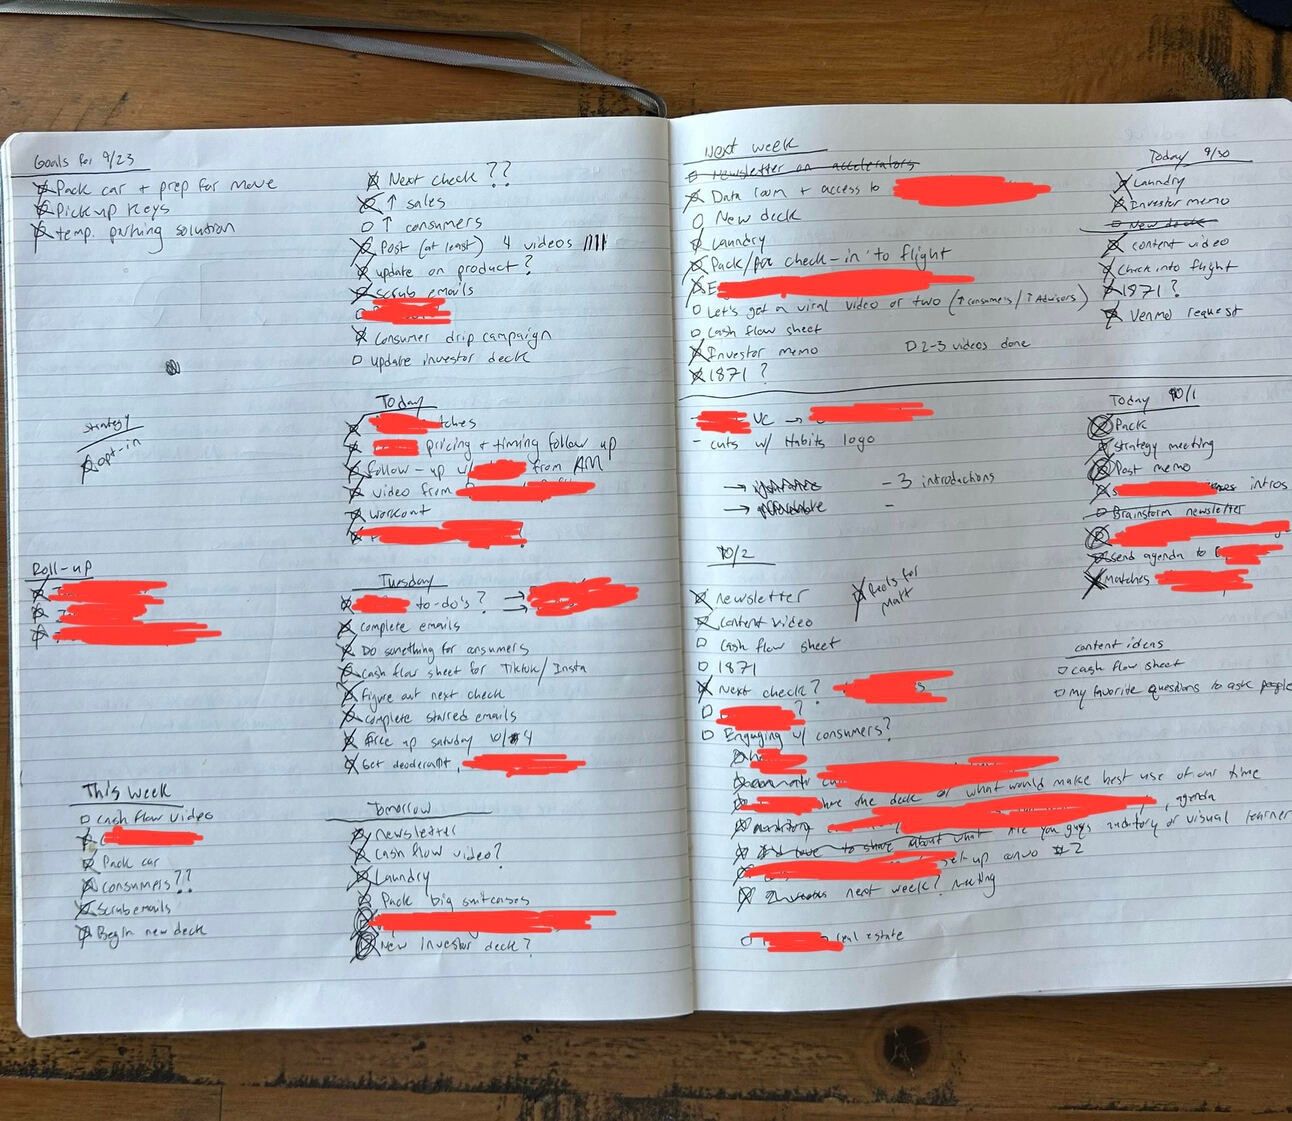 Goals for 9/23
Pack car + prep for move
Pickup Keys
temp. parking solution
Next check ??
↑ sales
↑ consumers
Post (at least) 4 videos
update on product?
Scrub emails
Consumer drip campaign
update investor deck
strategy
opt-in
Today
pricing + timing follow up
follow-up w/ from AM
video from
workout
Roll-up
Tuesday
to-do's? →
→
complete emails
Do something for consumers
Cash flow sheet for TikTok/Insta
figure out next check
complete starred emails
free up saturday 10/4
Get deoderant,
This week
cash flow video
Pack car
Consumers??
Scrub emails
Begin new deck
Tomorrow
newsletter
Cash flow video?
Laundry
Pack big suitcases
New investor deck?
Next week
Newsletter on accelerators
Data room + access to
New deck
Laundry
Pack/ check-in to flight
Let's get a viral video or two (↑consumers/↑Advisors)
Cash flow sheet
Investor memo
2-3 videos done
1871?
Today 9/30
Laundry
Investor memo
New deck
content video
Check into flight
1871?
Venmo request
- VC →
- cuts w/ Habits logo
→
- 3 introductions
→
-
Today 10/1
Pack
Strategy meeting
Post memo
intros
Brainstorm newsletter
Send agenda to
Matches
10/2
newsletter
Reels for
Matt
content video
Cash flow sheet
1871
Next check?
?
Engaging w/ consumers?
content ideas
cash flow sheet
my favorite questions to ask people
the deck or what would make best use of our time
, agenda
I'd love to share about what Are you guys auditory or visual learner
set-up convo #2
next week? Meeting
real estate